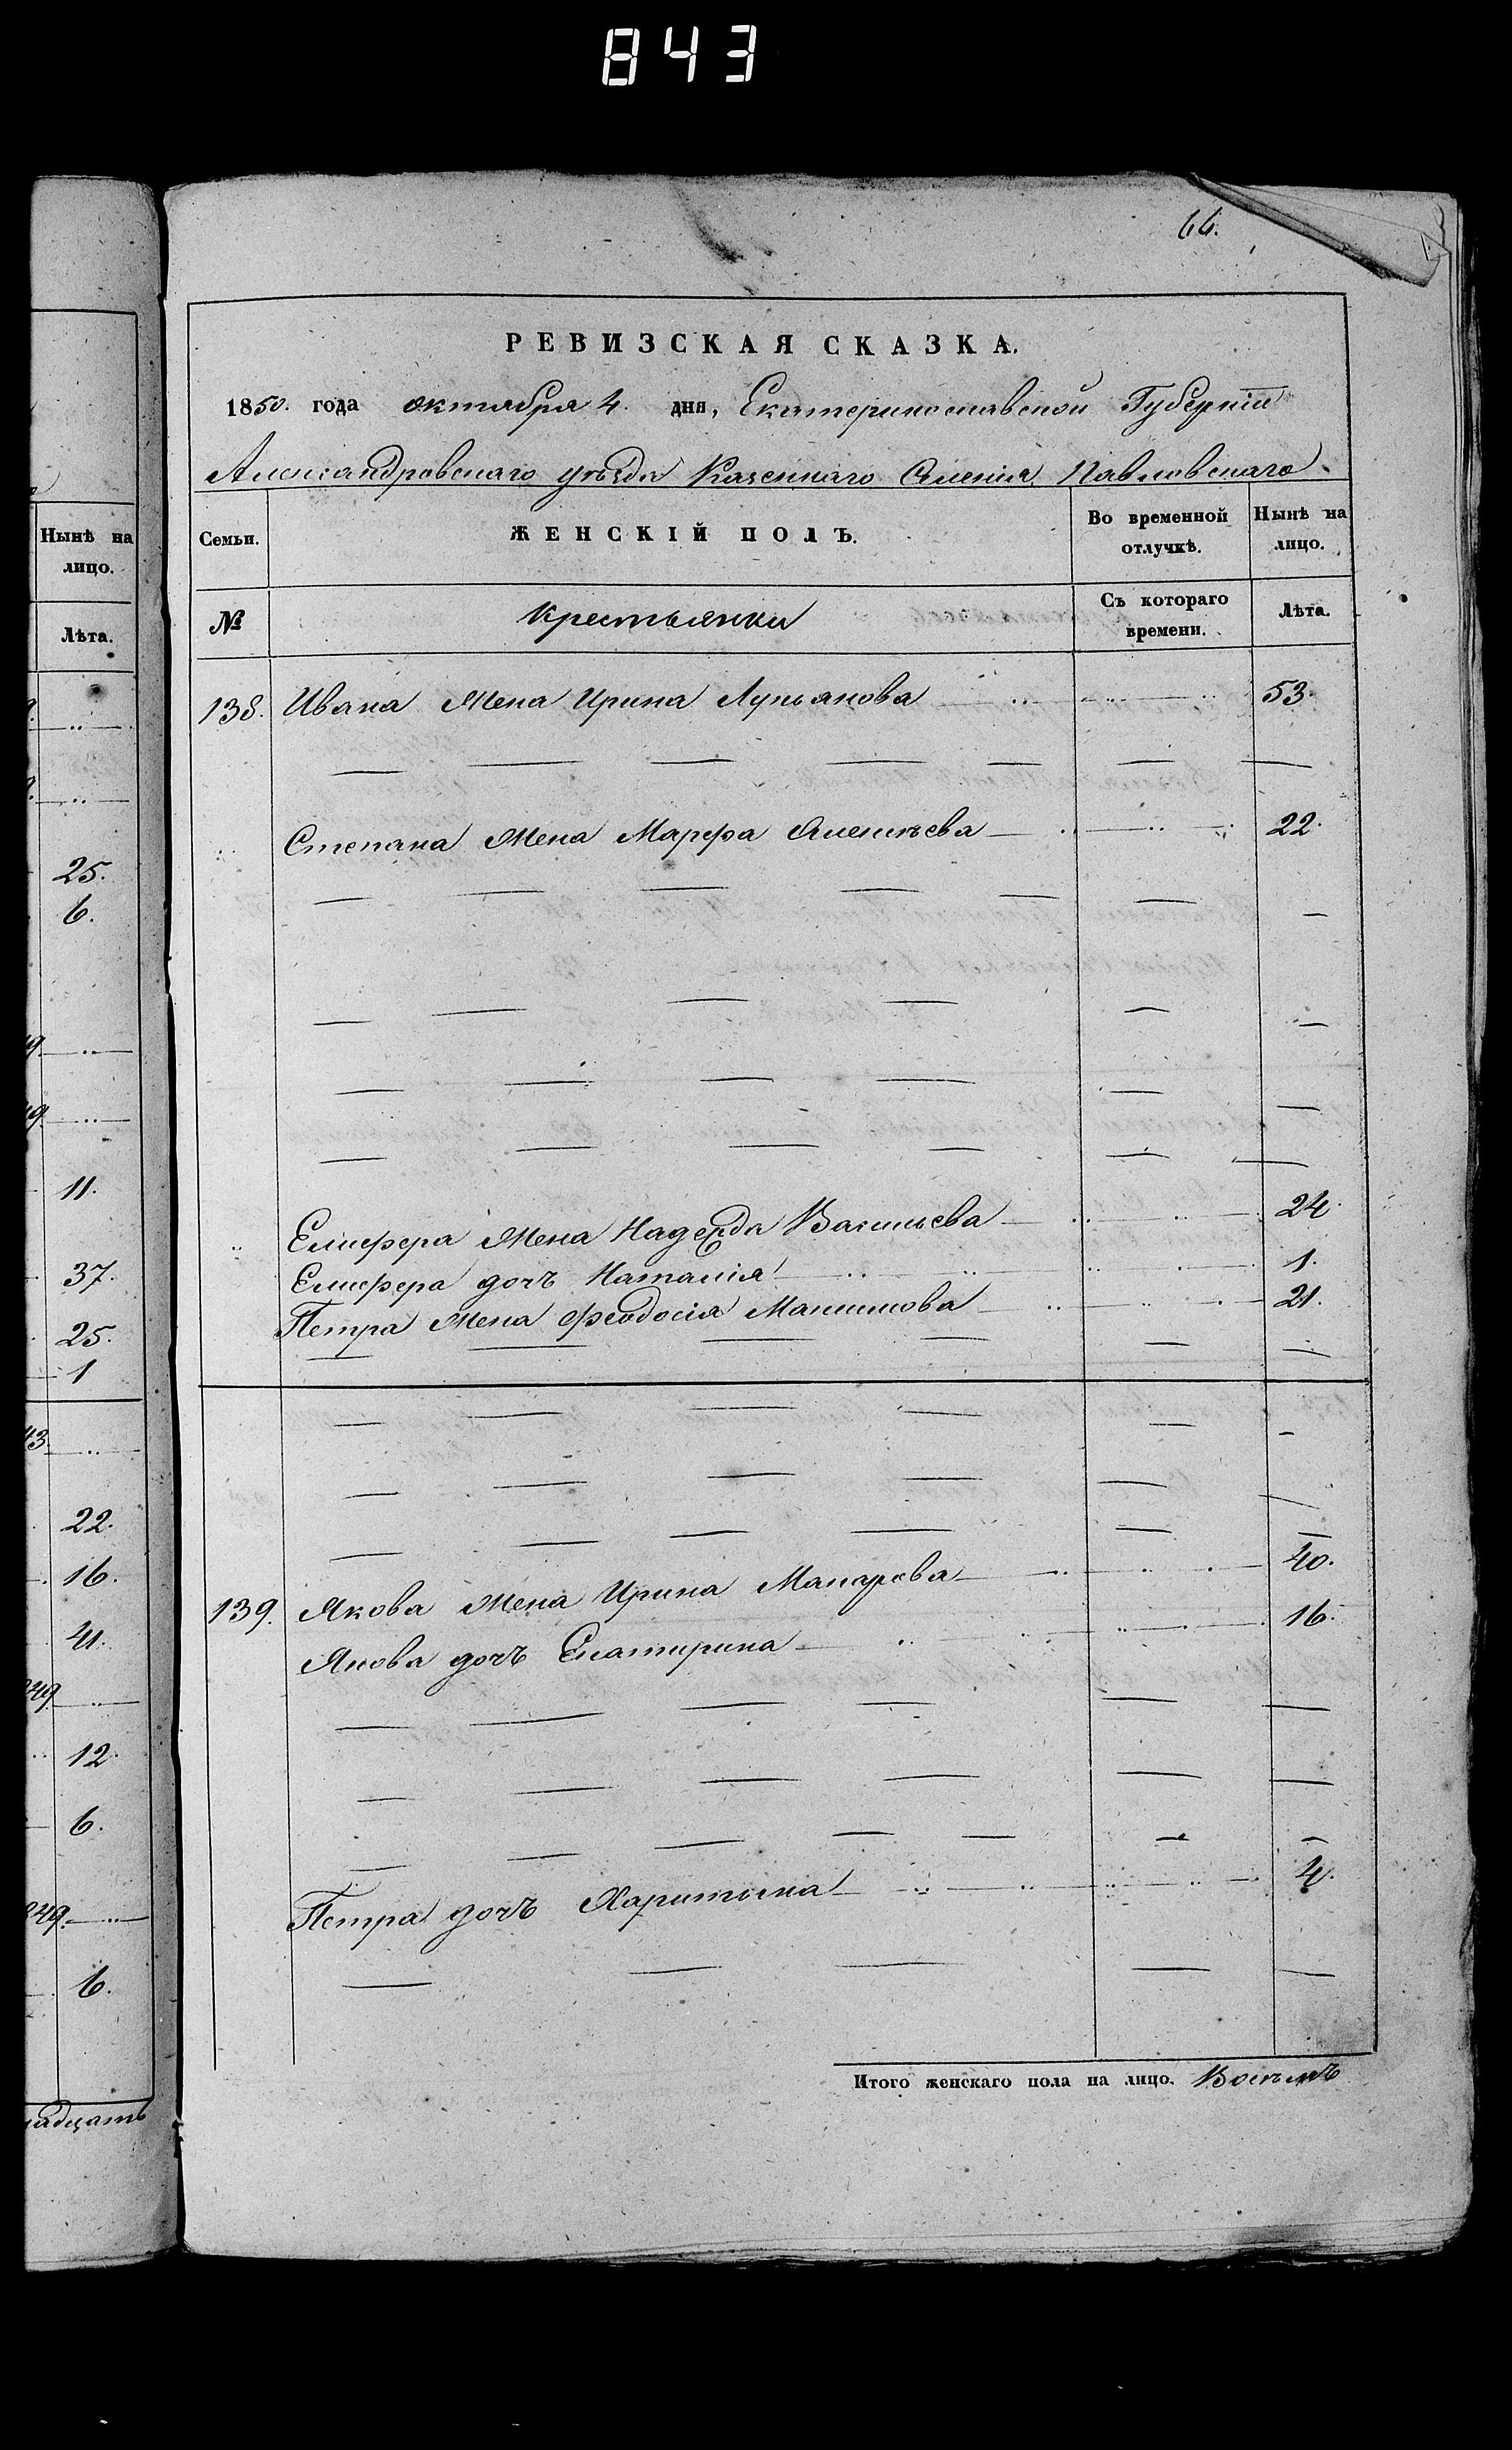 843
66.
РЕВИЗСКАЯ СКАЗКА.
1850. года октября 4. дня, Екатеринославской Губерніи
Александровскаго уѣзда Казеннаго Селенія Павловскаго
Семьи.
ЖЕНСКІЙ ПОЛЪ.
Во временной отлучкѣ.
Нынѣ на лицо.
№
Крестьянки
Съ котораго времени.
Лѣта.
138. Ивана жена Ирина Лукьянова 53.
Степана жена Марфа Алексѣева 22.
Елисфера жена Надежда Васильева 24.
Елисфера дочь Наталія 1.
Петра жена Феодосія Максимова 21.
139. Якова жена Ирина Макарова 40.
Якова дочь Екатирина 16.
Петра дочь Харитина 4.
Итого женскаго пола на лицо. Восемь
Нынѣ на
лицо.
Лѣта.
25.
6.
11.
37.
25.
1
43
22.
16.
41.
849
12.
6.
849.
6.
надцать